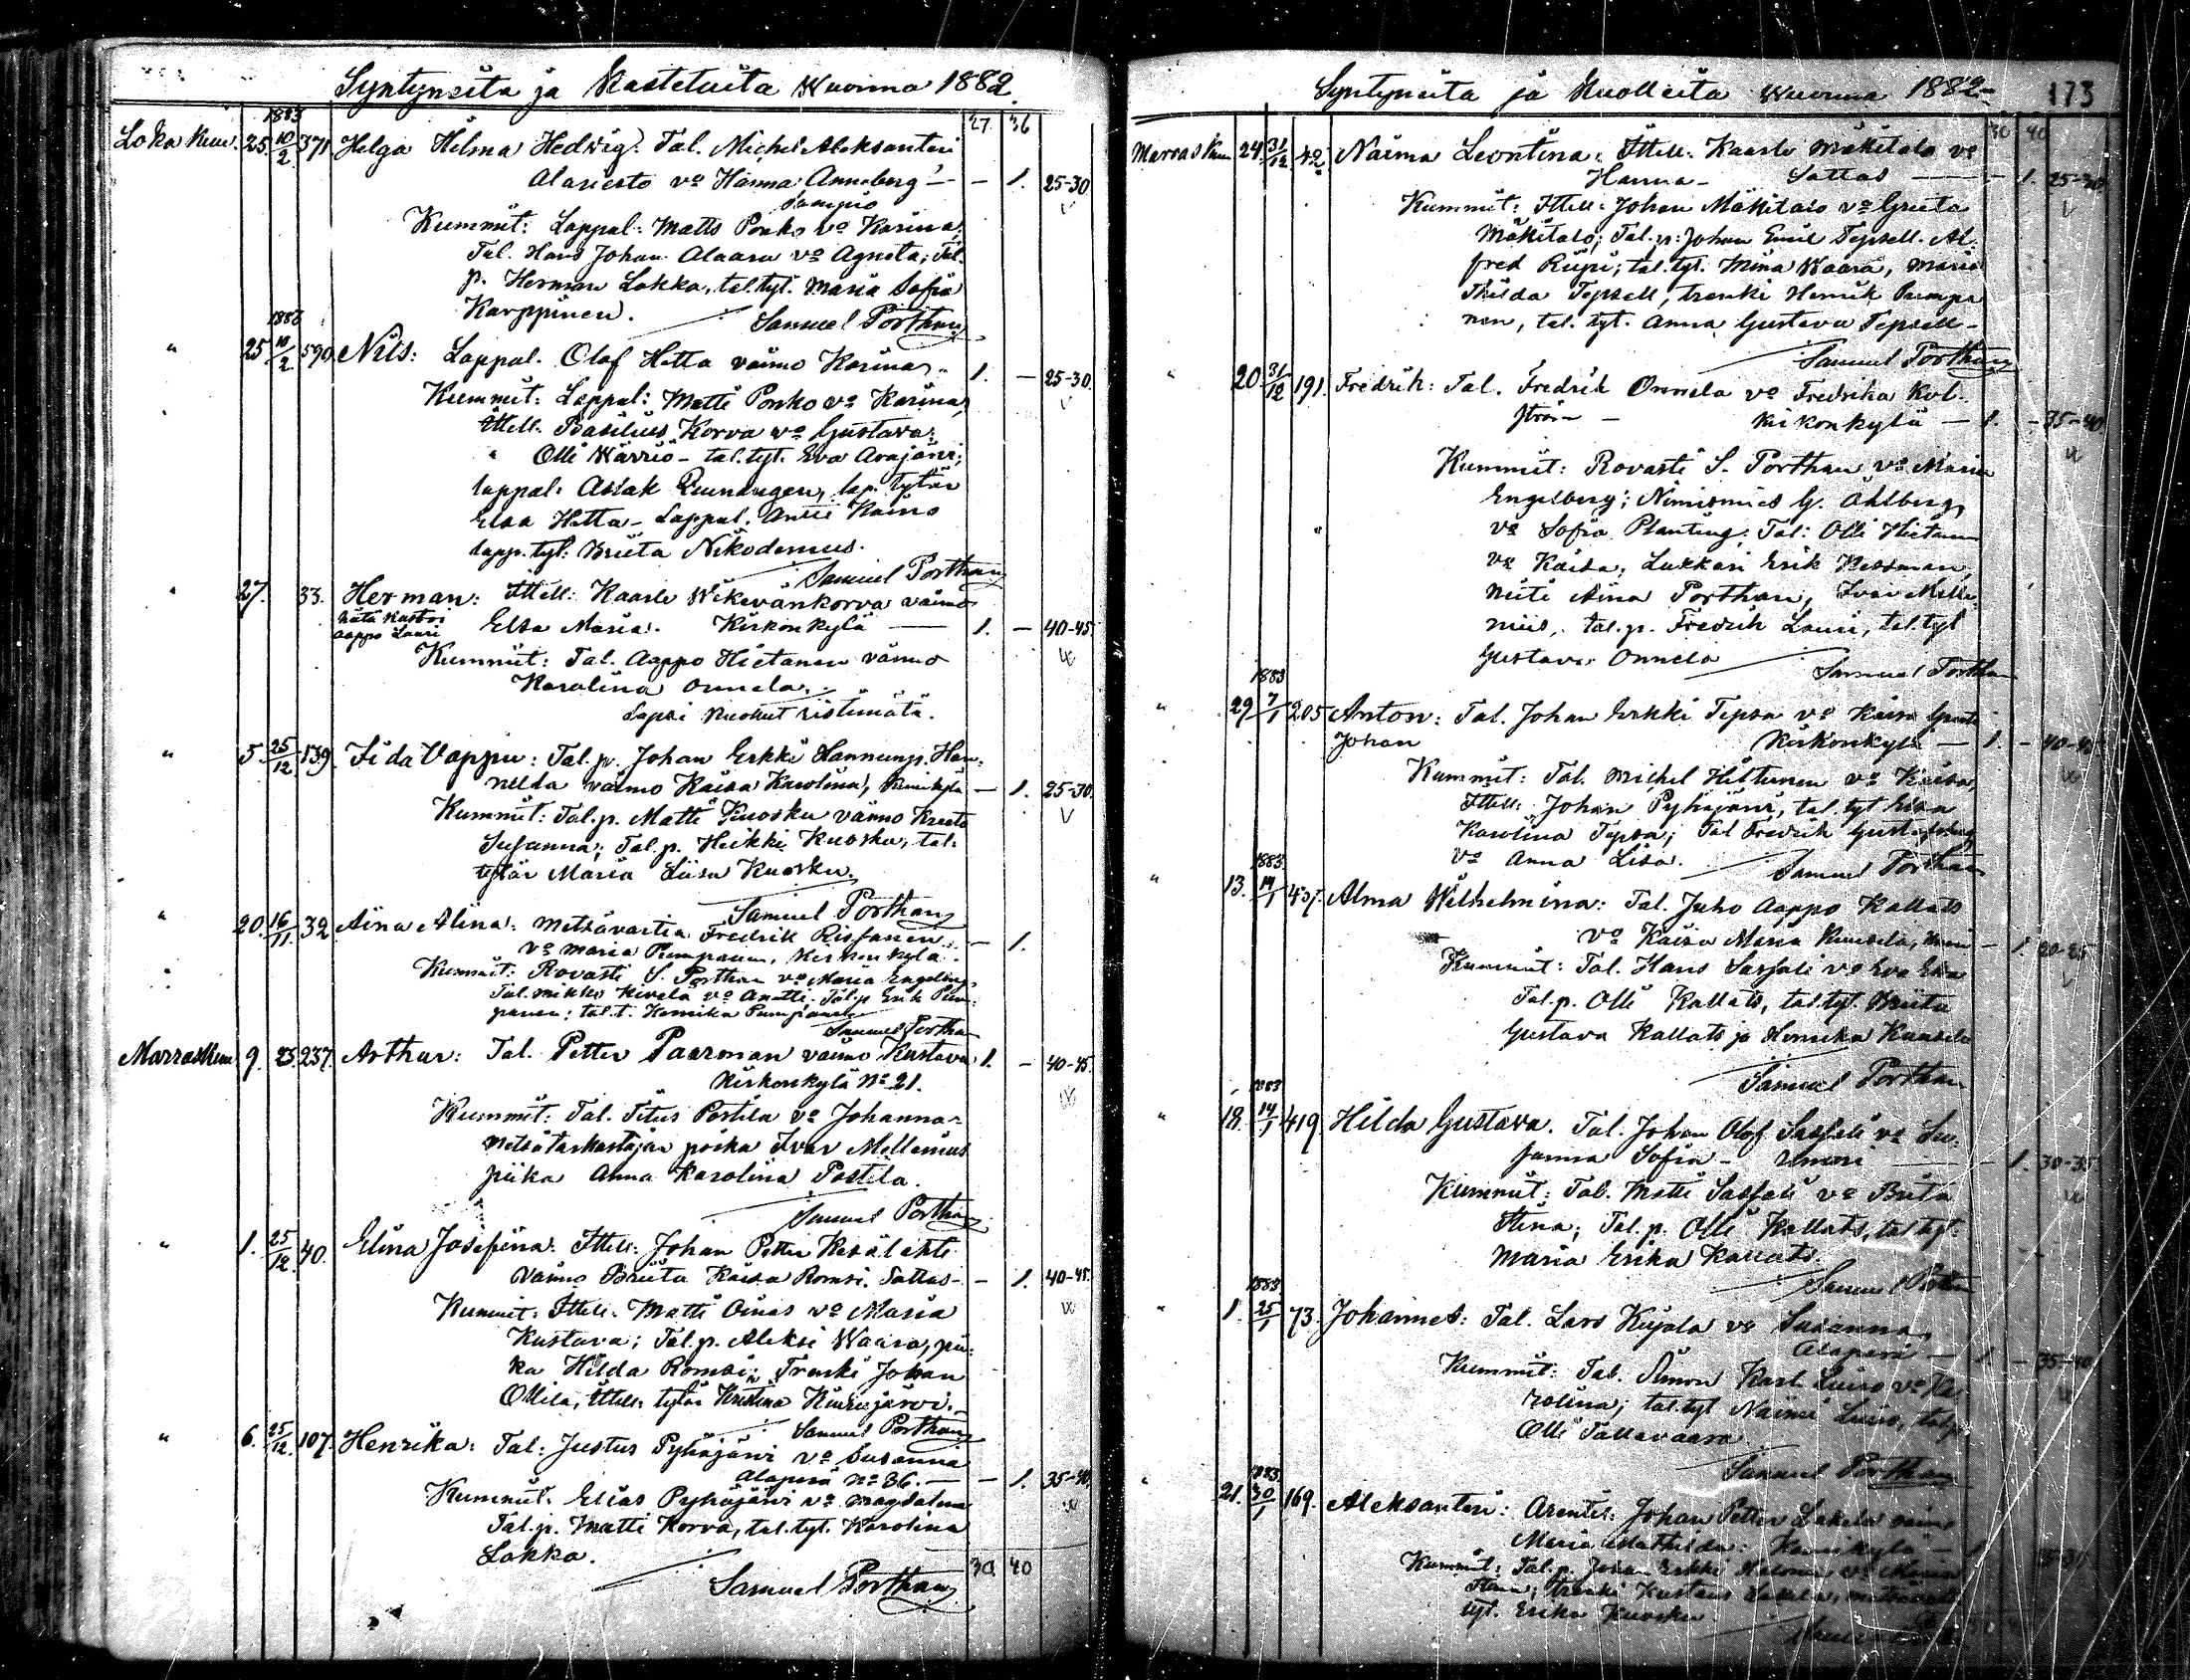 Syntyneitä ja Kastetuita Wuonna 1882.
1883 27. 36
Loka Kuu. 25. 10/2 371 Helga Hilma Hedvig. Tal. Michel Aleksanteri
Alariesto vo Hanna Anneberg - - 1. 25-30
Sompio
Kummit: Lappal: Matts Ponko vo Karina;
Tal. Hans Johan Alaara vo Agneta; Tal.
p. Herman Lokka, tal.tyt. Maria Sofia
Karppinen.
Samuel Porthan
1883
" 25 10/2 590 Nils: Lappal. Olof Hetta vaimo Karina 1. - 25-30.
Kummit: Lappal: Matti Ponko vo Karina,
Ittell. Basilius Korva vo Gustava;
" Olli Wärriö - tal.tyt. Eva Arajärvi;
lappal: Aslak lap. tytär
Elsa Hetta - Lappal. Antti
lapp.tyt: Briita Nikodemus.
Samuel Porthan
" 27. 33. Herman: Ittell: Kaarle Wikevänkorva vaimo
hätä kastoi
Aappo Lauri
Elsa Maria. Kirkonkylä - 1. - 40-45
Kummit: Tal. Aappo Hietanen vaimo
Karolina Onnela.
Lapsi kuollut ristimätä.
" 5. 25/12 139. Fida Vappu: Tal.p. Johan Erkki Hannunp. Han-
nelda vaimo Kaisa Karolina, - 1. 25-30.
Kummit: Tal.p. Matti Kuosku vaimo Kreeta
Susanna; Tal.p. Heikki Kuosku, tal.
tytär Maria Liisa Kuosku.
Samuel Porthan
" 20. 16/11. 32 Aina Alina: Metsävartia Fredrik Rissanen - 1.
vo Maria Pumpanen, Kirkonkylä.
Kummit: Rovasti S. Porthan vo Maria Engelberg,
Tal. Mikko Kivela vo Anetti. Tal.p Erik Pum-
panen; tal.t. Henrika Pumpanen
Samuel Porthan
Marraskuu 9. 25. 237. Arthur: Tal. Petter Paarman vaimo Kustava 1. - 40-45.
Kirkonkylä No 21.
Kummit: Tal. Titus Postila vo Johanna
Metsätarkastajan poika Ivar Mellenius
piika Anna Karolina Postila.
Samuel Porthan
" 1. 25/12. 40. Elina Josefina. Ittell: Johan Petter Kesälahti
Vaimo Briita Kaisa Romsi. Sattas - - 1. 40-45.
Kummit: Ittell. Matti Oinas vo Maria
Kustava; Tal.p. Aleksi Waara, pii-
ka Hilda Romsi; Trenki Johan
Ollila, Ittell: tytär Kristina
Samuel Porthan
" 6. 25/12. 107. Henrika: Tal: Justus Pyhäjärvi vo Susanna
Alaperä No 36. - - 1. 35-40.
Kummit. Elias Pyhäjärvi vo Magdalena
Tal.p. Matti Korva, tal.tyt. Karolina
Lokka. 30 40
Samuel Porthan
Syntyneitä ja Kuolleita Wuonna 1882 173
30 40
Marras Kuu 24. 31/12. 42 Naima Leontina: Ittell: Kaarle Mäkitalo vo
Hanna - Sattas - - 1. 25-30
Kummit: Ittell: Johan Mäkitalo vo Greeta
Mäkitalo; Tal.p: Johan Emil Tepsell. Al-
fred Riipi; tal.tyt. Miina Waara, Maria
Thilda Tepsell, trenki Henrik Pumpa
nen, tal. tyt. Anna Gustava Tepsell -
Samuel Porthan
" 20. 31/12 191. Fredrik: Tal. Fredrik Onnela vo Fredrika Kol-
ström - Kirkonkylä - 1. - 35-40
Kummit: Rovasti S. Porthan vo Maria
Engelberg; Nimismies G. Öhlberg,
vo Sofia Planting; Tal: Olli Hietanen
vo Kaisa, Lukkari Erik Nessman,
Neiti Aina Porthan, Ivar Melle-
nius, tal.p. Fredrik Lauri, tal.tyt
Gustava Onnela
Samuel Porthan
1883
" 29 7/1 205 Anton: Tal. Johan Erkki Tepsa vo Kaisa
Johan Kirkonkylä - 1. - 40-45
Kummit: Tal. Michel Hiltunen vo Kaisa,
Ittell: Johan Pyhäjärvi, tal.tyt Elsa
Karolina Tepsa; Tal Fredrik
vo Anna Lisa.
Samuel Porthan
1883
" 13. 14/1 437. Alma Wilhelmina: Tal. Juho Aappo Kallats
vo Kaisa Maria - 1. 20-25
Kummit: Tal. Hans Sassali vo Eva
Tal.p. Olli Kallats, tal.tyt. Briita
Gustava Kallats ja Henrika
Samuel Porthan
1883
" 18. 14/1 419. Hilda Gustava. Tal. Johan Olof Sassali vo Su-
sanna Sofia - - 1. 30-35
Kummit: Tal. Matti Sassali vo Briita
Stina; Tal.p. Olli Kallats, tal.tyt.
Maria Erika Kallats.
Samuel Porthan
1883
" 1. 25/1 73. Johannes: Tal. Lars Kujala vo Susanna,
Alaperä - 1 - 35-40
Kummit: Tal. Simon Karl Luiro vo Ka-
rolina; tal.tyt Naimi Luiro, tal.p
Olli
Samuel Porthan
1883
" 21. 30/1 169. Aleksanteri: Arentil: Johan Petter Lakela vaimo
Maria Mathilda:
Kummit: Tal.p. Johan Erkki vo Maria
Stina; trenki Kustaus
tyt. Erika Kuosku